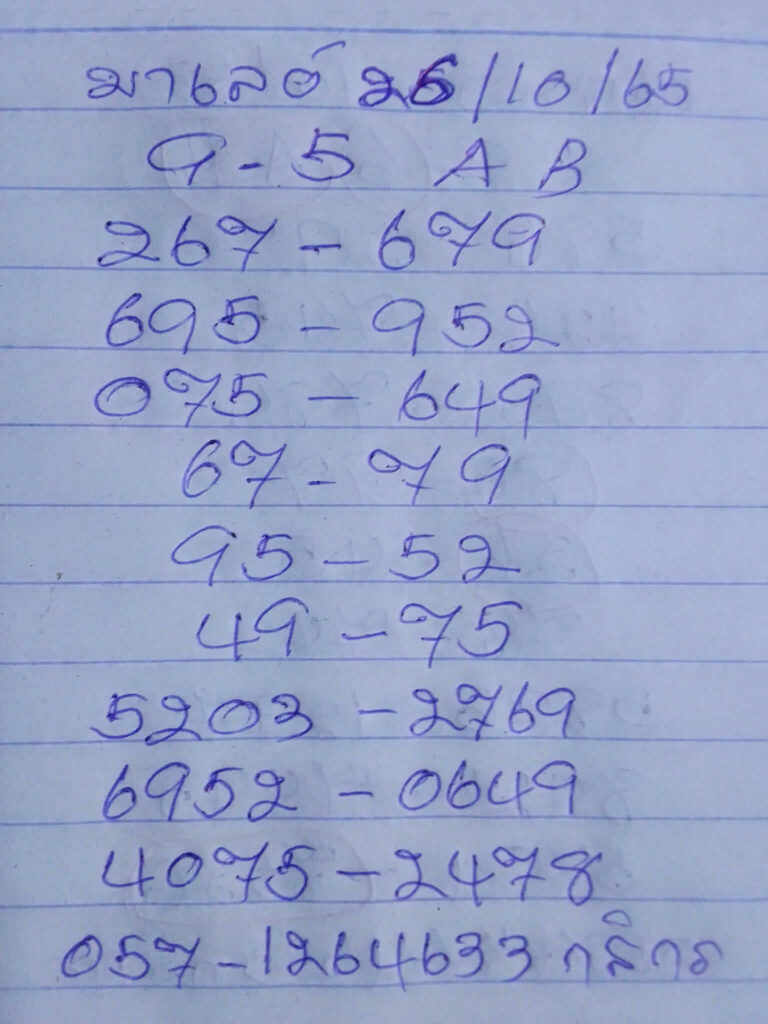 มาเลย์ 26/10/65
9-5 A B
267-679
695-952
075-649
67-79
95-52
49-75
5203-2769
6952-0649
4075-2478
057-1264633